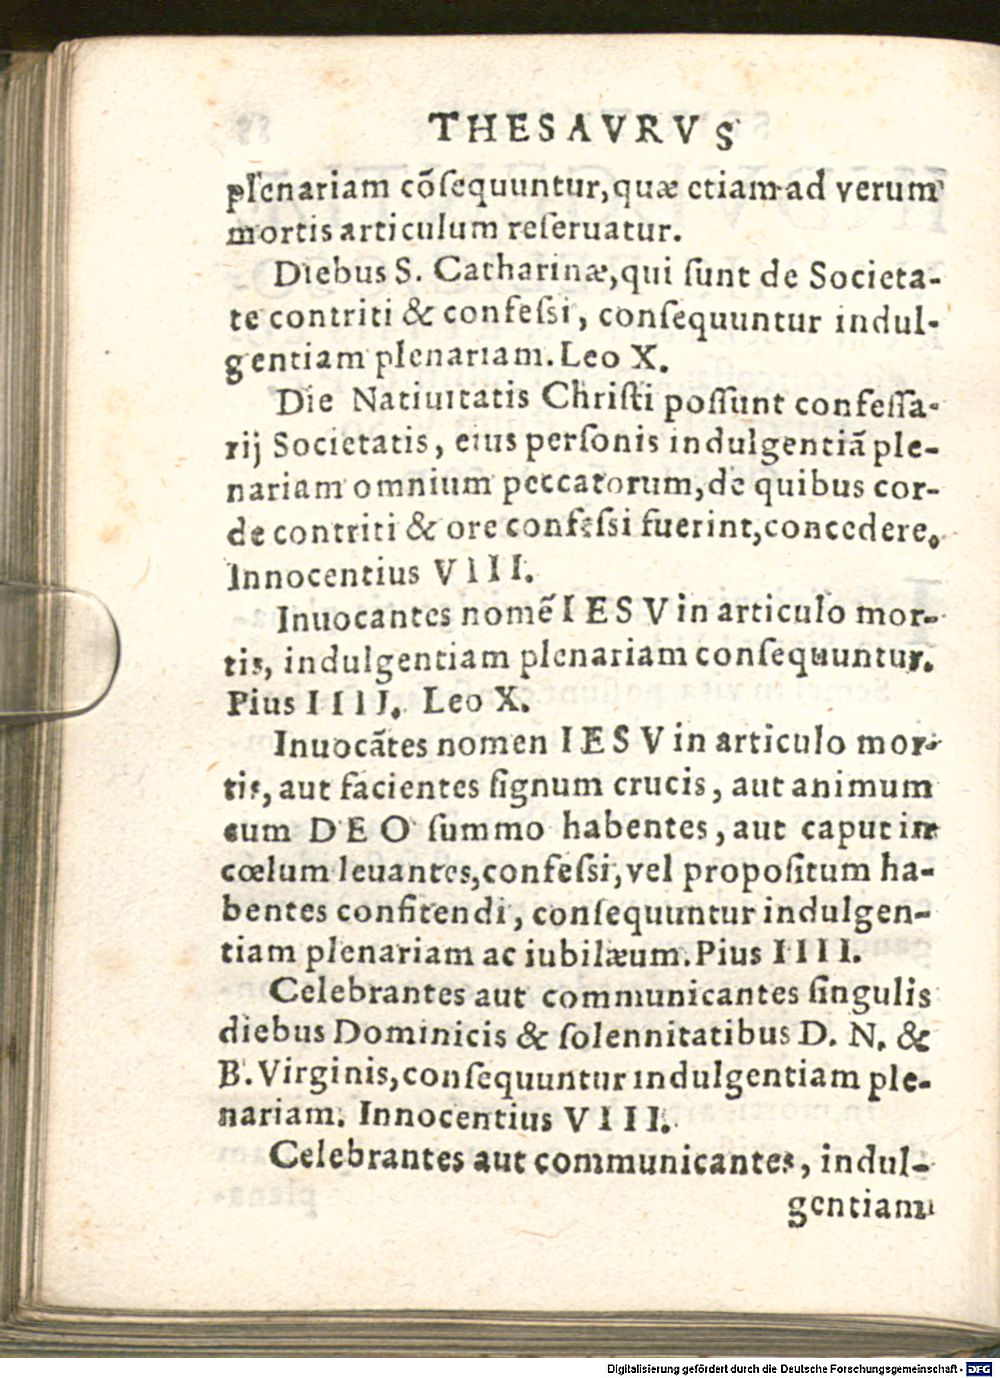 THESAVRVS
plenariam cõſequuntur,quæ etiam ad verum
mortis articulum reſeruatur.
Diebus S. Catharinæ,qui ſunt de Societa-
te contriti & confeſsi, conſequuntur indul-
gentiam plenariam.Leo X.
Die Natiuitatis Chriſti poſſunt confeſſa-
rij Societatis, eius perſonis indulgentiã ple-
nariam omnium peccatorum,de quibus cor-
de contriti & ore confeſsi fuerint,concedere.
Innocentius VIII.
Inuocantes nomẽ IESV in articulo mor-
tis, indulgentiam plenariam conſequuntur.
Pius IIII. Leo X.
Inuocãtes nomen IESV in articulo mor-
tis, aut facientes ſignum crucis, aut animum
cum DEO ſummo habentes, aut caput in
cœlum leuantes,confeſsi, vel propoſitum ha-
bentes confitendi, conſequuntur indulgen-
tiam plenariam ac iubilæum.Pius IIII.
Celebrantes aut communicantes ſingulis
diebus Dominicis & ſolennitatibus D. N. &
B.Virginis,conſequuntur indulgentiam ple-
nariam. Innocentius VIII.
Celebrantes aut communicantes, indul-
gentiam
Digitalisierung gefördert durch die Deutsche Forschungsgemeinschaft - DFG